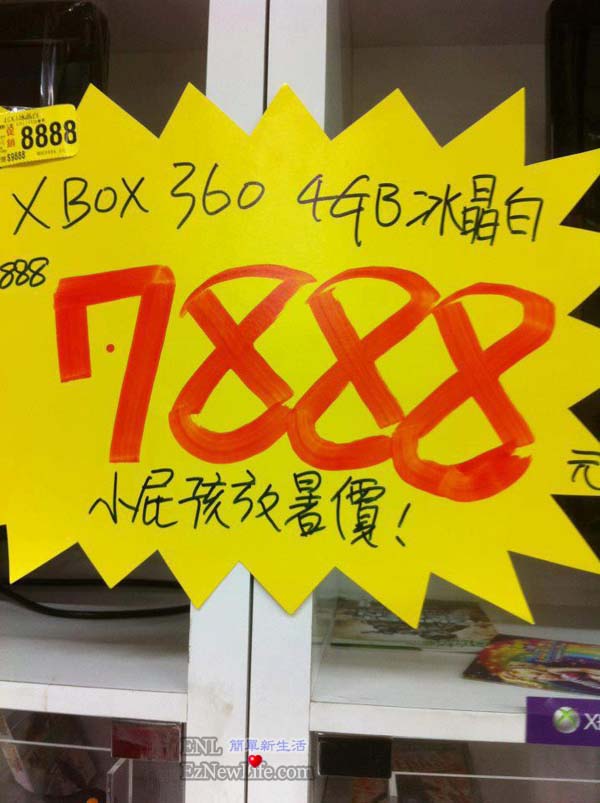 8888
$9888
XBOX 360 4GB冰晶白
888
7888
元
小屁孩放暑價!
ENL 簡單新生活
EzNewLife.com